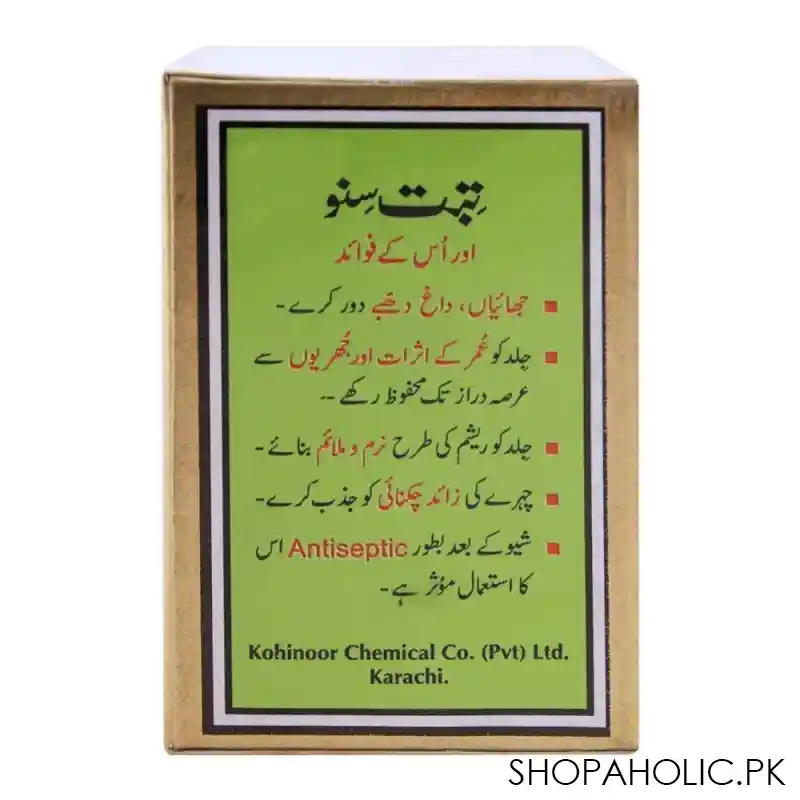 تِبّت سِنو
اور اُس کے فوائد
■ جھائیاں، داغ دھبے دور کرے -
■ جِلد کو عُمر کے اثرات اور جُھریوں سے
عرصہ دراز تک محفوظ رکھے --
■ جِلد کو ریشم کی طرح نرم و ملائم بنائے -
■ چہرے کی زائد چکنائی کو جذب کرے -
■ شیو کے بعد بطور Antiseptic اس
کا استعمال مؤثر ہے -
Kohinoor Chemical Co. (Pvt) Ltd.
Karachi.
SHOPAHOLIC.PK